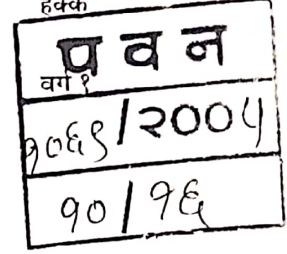 हक्क
पवन
वर्ग १
१०६९/२००५
१०/१६